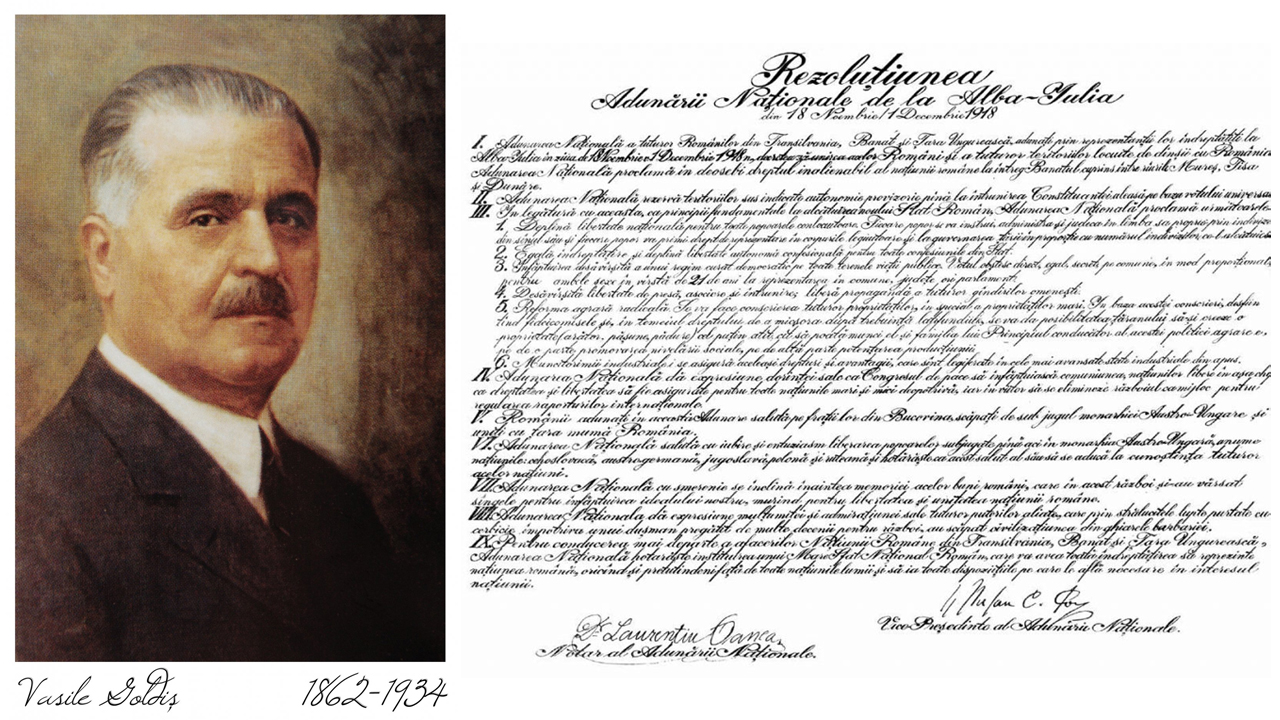 Vasile Goldiș 1862-1934
Rezoluțiunea
Adunării Naționale de la Alba-Iulia
din 18 Noembrie/1 Decembrie 1918
I. Adunarea Națională a tuturor Românilor din Transilvania, Banat și Țara Ungurească, adunați prin reprezentanții lor îndreptățiți la
Alba-Iulia în ziua de 18 Noembrie/1 Decembrie 1918, decretează unirea acelor Români și a tuturor teritoriilor locuite de dînșii cu România.
Adunarea Națională proclamă îndeosebi dreptul inalienabil al națiunii române la întreg Banatul cuprins între rîurile Mureș, Tisa
și Dunăre.
II. Adunarea Națională rezervă teritoriilor sus indicate autonomie provizorie pînă la întrunirea Constituantei aleasă pe baza votului universal
III. În legătură cu aceasta, ca principii fundamentale la alcătuirea noului Stat Român, Adunarea Națională proclamă următoarele:
1. Deplină libertate națională pentru toate popoarele conlocuitoare. Fiecare popor se va instrui, administra și judeca în limba sa proprie prin indivizi
din sînul său și fiecare popor va primi drept de reprezentare în corpurile legiuitoare și la guvernarea țării în proporție cu numărul indivizilor ce-l alcătuiesc
2. Egală îndreptățire și deplină libertate autonomă confesională pentru toate confesiunile din Stat.
3. Înfăptuirea desăvîrșită a unui regim curat democratic pe toate terenele vieții publice. Votul obștesc direct, egal, secret, pe comune, în mod proporțional,
pentru ambele sexe în vîrstă de 21 de ani la reprezentarea în comune, județe ori parlament.
4. Desăvîrșită libertate de presă, asociere și întrunire; liberă propagandă a tuturor gîndirilor omenești.
5. Reforma agrară radicală. Se va face conscrierea tuturor proprietăților, în special a proprietăților mari. În baza acestei conscrieri, desfiin
țînd fideicomisele și, în temeiul dreptului de a micșora după trebuință latifundiile, se va da posibilitatea țăranului să-și creeze o
proprietate (arător, pășune, pădure) cel puțin atît cît să poată munci el și familia lui. Principiul conducător al acestei politici agrare e,
pe de o parte promovarea nivelării sociale, pe de altă parte potențarea producțiunii.
6. Muncitorimii industriale i se asigură aceleași drepturi și avantagii, care sînt legiferate în cele mai avansate state industriale din apus.
IV. Adunarea Națională dă expresiune dorinței sale ca Congresul de pace să înfăptuiască comuniunea națiunilor libere în așa chip
ca dreptatea și libertatea să fie asigurate pentru toate națiunile mari și mici deopotrivă, iar în viitor să se elimineze războiul ca mijloc pentru
regularea raporturilor internaționale.
V. Românii adunați în această Adunare salută pe frații lor din Bucovina, scăpați de sub jugul monarhiei Austro-Ungare și
uniți cu țara mumă România.
VI. Adunarea Națională salută cu iubire și entuziasm liberarea popoarelor subjugate pînă aci în monarhia Austro-Ungară, anume
națiunile: cehoslovacă, austrogermană, jugoslavă, polonă și ruteană și hotărăște ca acest salut al său să se aducă la cunoștința tuturor
acelor națiuni.
VII. Adunarea Națională cu smerenie se închină înaintea memoriei acelor bravi români, care în acest război și-au vărsat
sîngele pentru înfăptuirea idealului nostru, murind pentru libertatea și unitatea națiunii române.
VIII. Adunarea Națională dă expresiune mulțumitei și admirațiunei sale tuturor puterilor aliate, care prin strălucitele lupte purtate cu
cerbicie împotriva unui dușman pregătit de multe decenii pentru război, au scăpat civilizațiunea din ghiarele barbariei.
IX. Pentru conducerea mai departe a afacerilor Națiunii Române din Transilvania, Banat și Țara Ungurească,
Adunarea Națională hotărăște instituirea unui Mare Sfat Național Român, care va avea toată îndreptățirea să reprezinte
națiunea română, oricînd și pretutindeni față de toate națiunile lumii și să ia toate dispozițiile pe care le află necesare în interesul
națiunii.
Dr. Laurențiu Oanea
Notar al Adunării Naționale.
Ștefan C. Pop
Vice Președinte al Adunării Naționale.